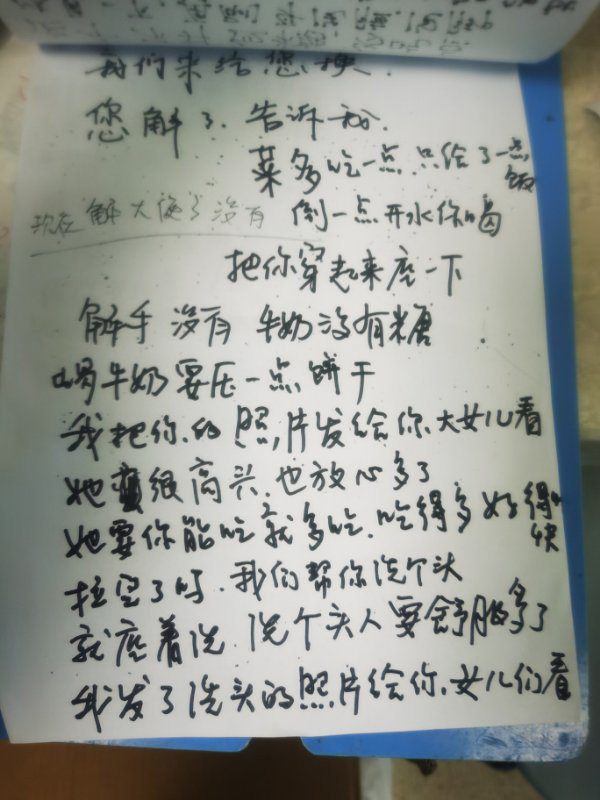 我们来给您换.
您解了.告诉我.
菜多吃一点.只给了一点饭
现在解大便了没有 倒一点开水你喝
把你穿起来座一下
解手没有 牛奶没有糖
喝牛奶要压一点饼干
我把你的照片发给你大女儿看
她很高头.也放心多了
她要你能吃就多吃.吃得多好得快
拉完了吗.我们帮你洗个头
就座着洗 洗个头人要舒服多了
我发了洗头的照片给你女儿们看